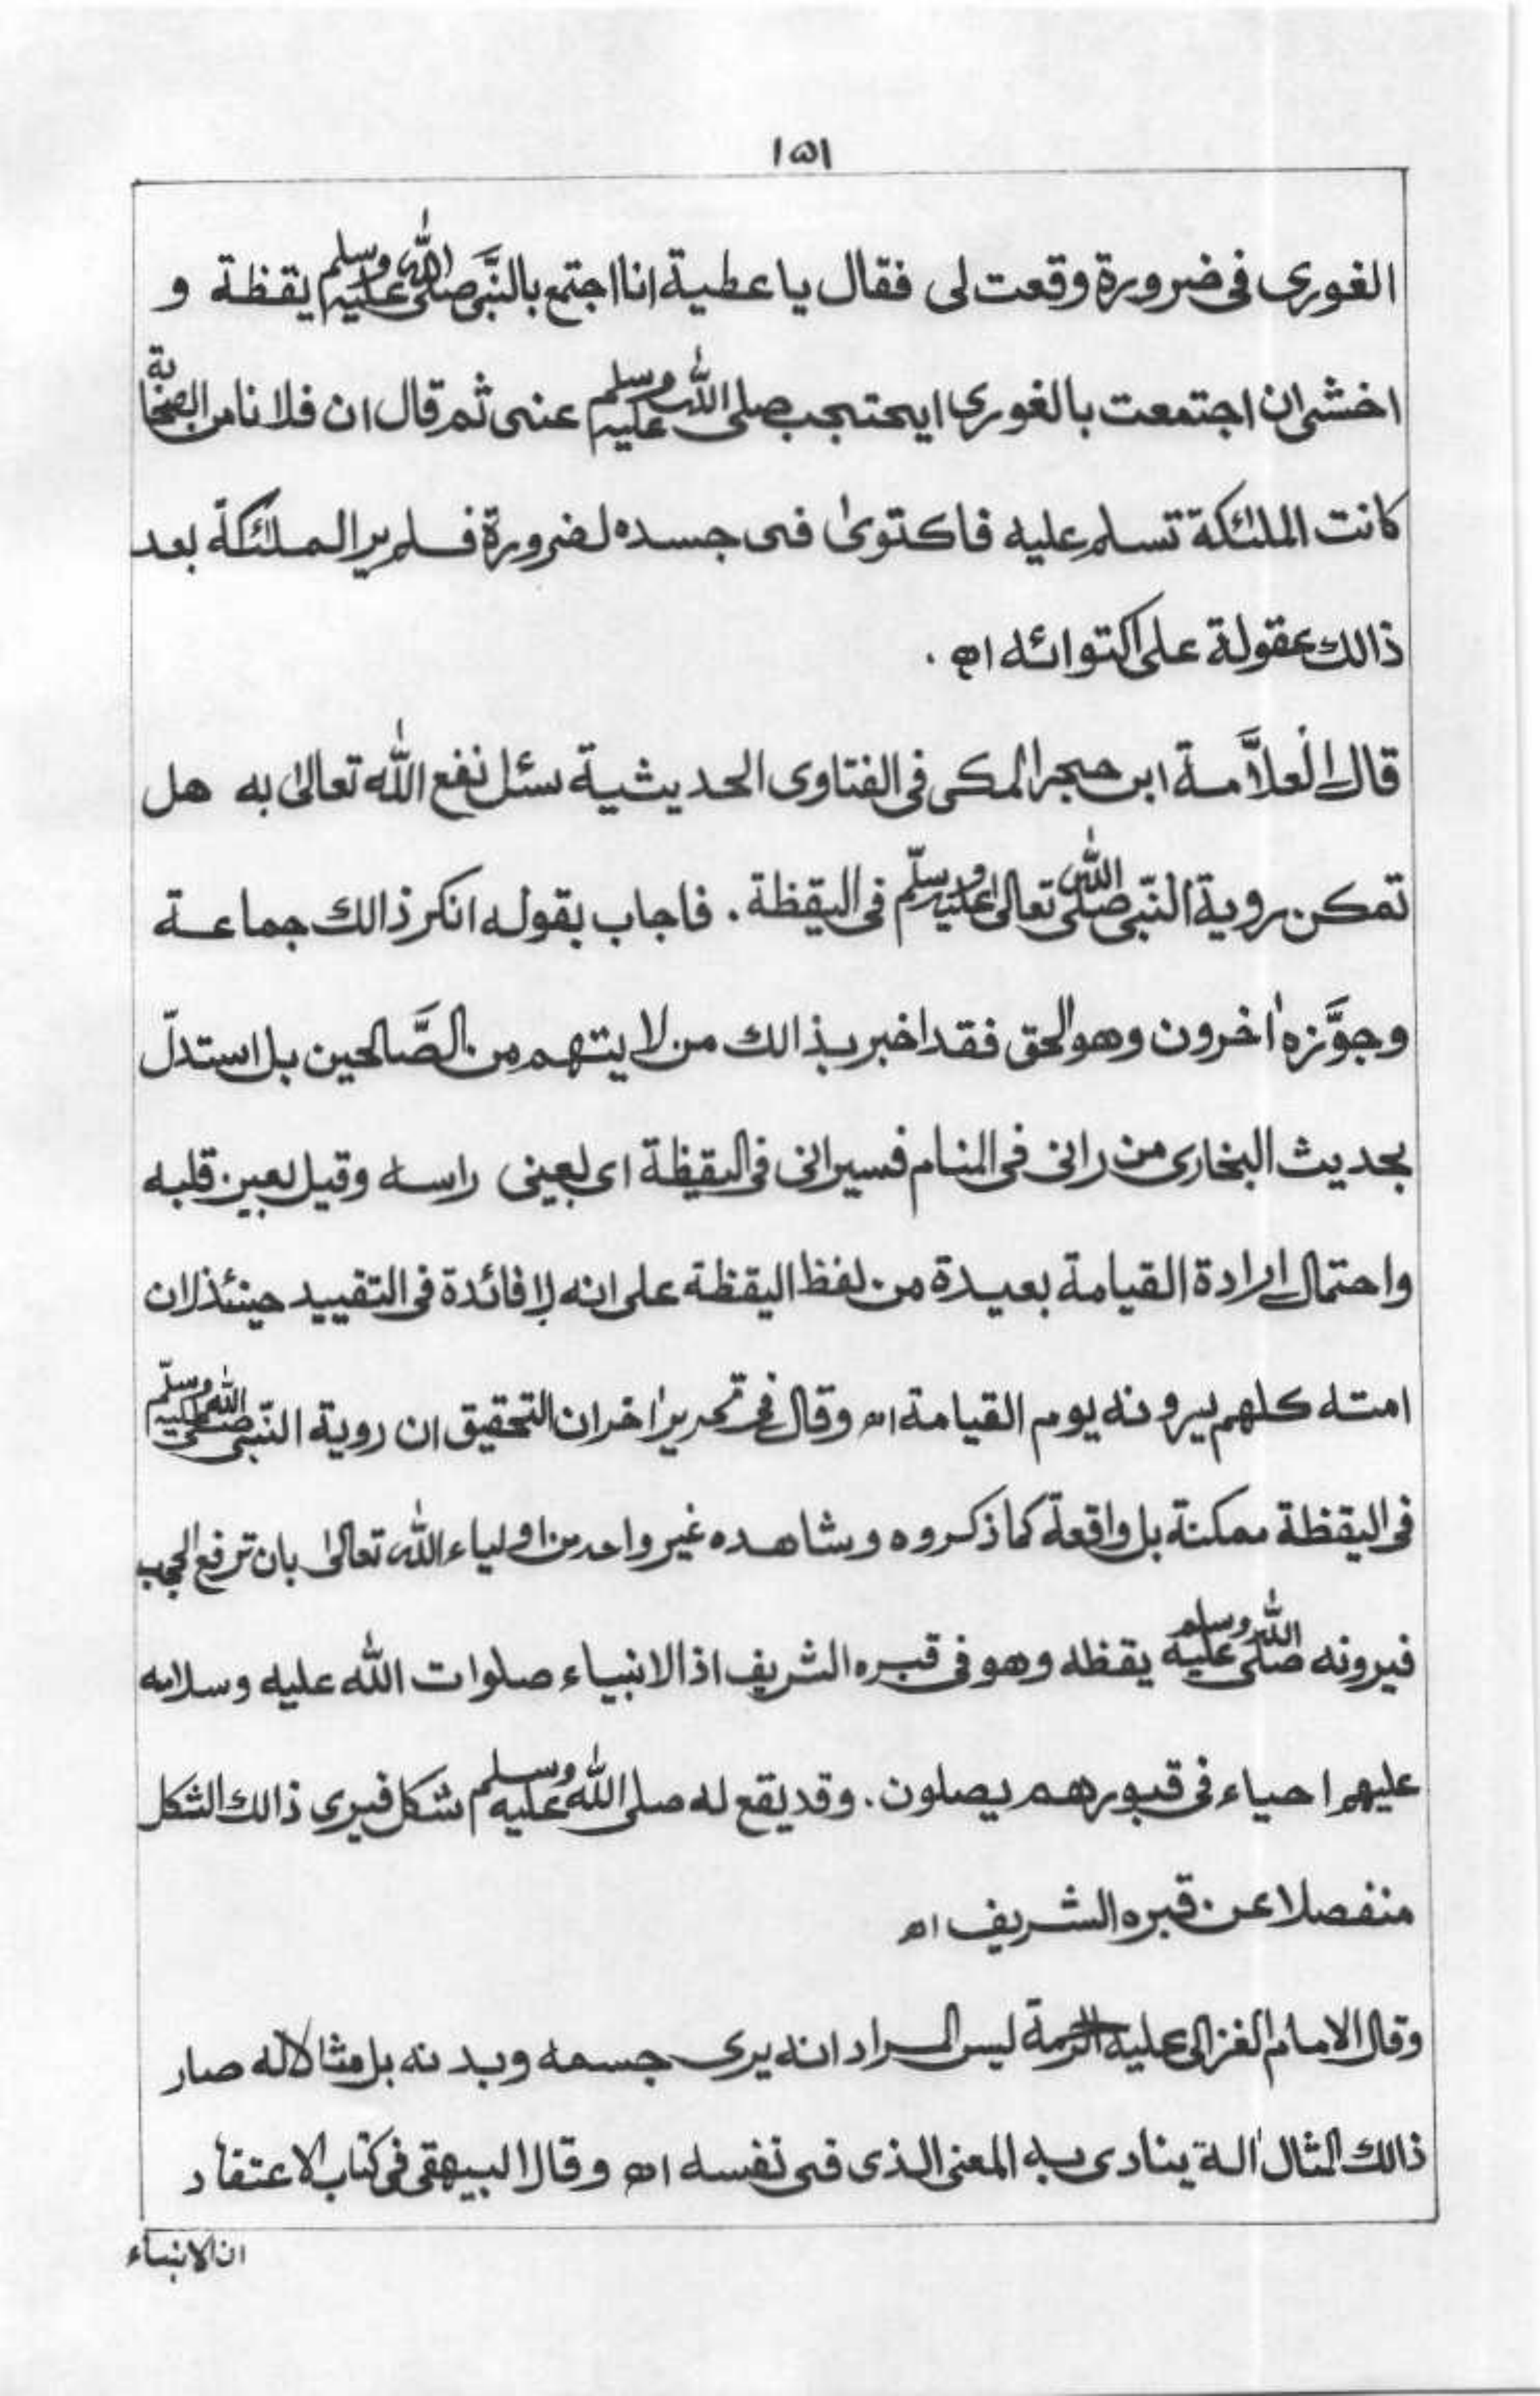 ١٥١
الغوری فی ضرورة وقعت لی فقال یا عطیة انا اجتمع بالنَّبی صلی الله علیه وسلم یقظة و
اخشی ان اجتمعت بالغوری ایحتجب صلی الله علیه وسلم عنی ثم قال ان فلانا من الصحابة
کانت الملئکة تسلم علیه فاکتویٰ فی جسده لضرورة فلم یر الملئکة بعد
ذالك عقولة علی اکتوائه اھ .
قال الْعلاَّمة ابن حجر المکی فی الفتاوی الحدیثیة سئل نفع الله تعالیٰ به هل
تمکن رویة النّبی صلی الله تعالیٰ علیه وسلّم فی الیقظة . فاجاب بقوله انکر ذالك جماعة
وجوَّزه اٰخرون وهو الحق فقد اخبر بذالك من لا یتهم من الصَّالحین بل استدلّ
بحدیث البخاری من رانی فی المنام فسیرانی فی الیقظة ای لعینی راسه وقیل لعین قلبه
واحتمال ارادة القیامة بعیدة من لفظ الیقظة علی انه لا فائدة فی التقیید حینئذ لان
امته کلهم یرونه یوم القیامة اھ وقال فی تحریر اٰخر ان التحقیق ان رویة النّبی صلی الله علیه وسلّم
فی الیقظة ممکنة بل واقعة کما ذکروه وشاهده غیر واحد من اولیاء الله تعالیٰ بان ترفع الحجب
فیرونه صلی الله علیه وسلم یقظه وهو فی قبره الشریف اذ الانبیاء صلوات الله علیه وسلامه
علیهم احیاء فی قبورهم یصلون . وقد یقع له صلی الله علیه وسلم شکل فیری ذالك الشکل
منفصلا عن قبره الشریف اھ
وقال الامام الغزالی علیه الرحمة لیس المراد انه یری جسمه وبدنه بل مثالا له صار
ذالك المثال اٰلة ینادی به المعنی الذی فی نفسه اھ وقال البیهقی فی کتاب الاعتقاد
ان الانبیاء